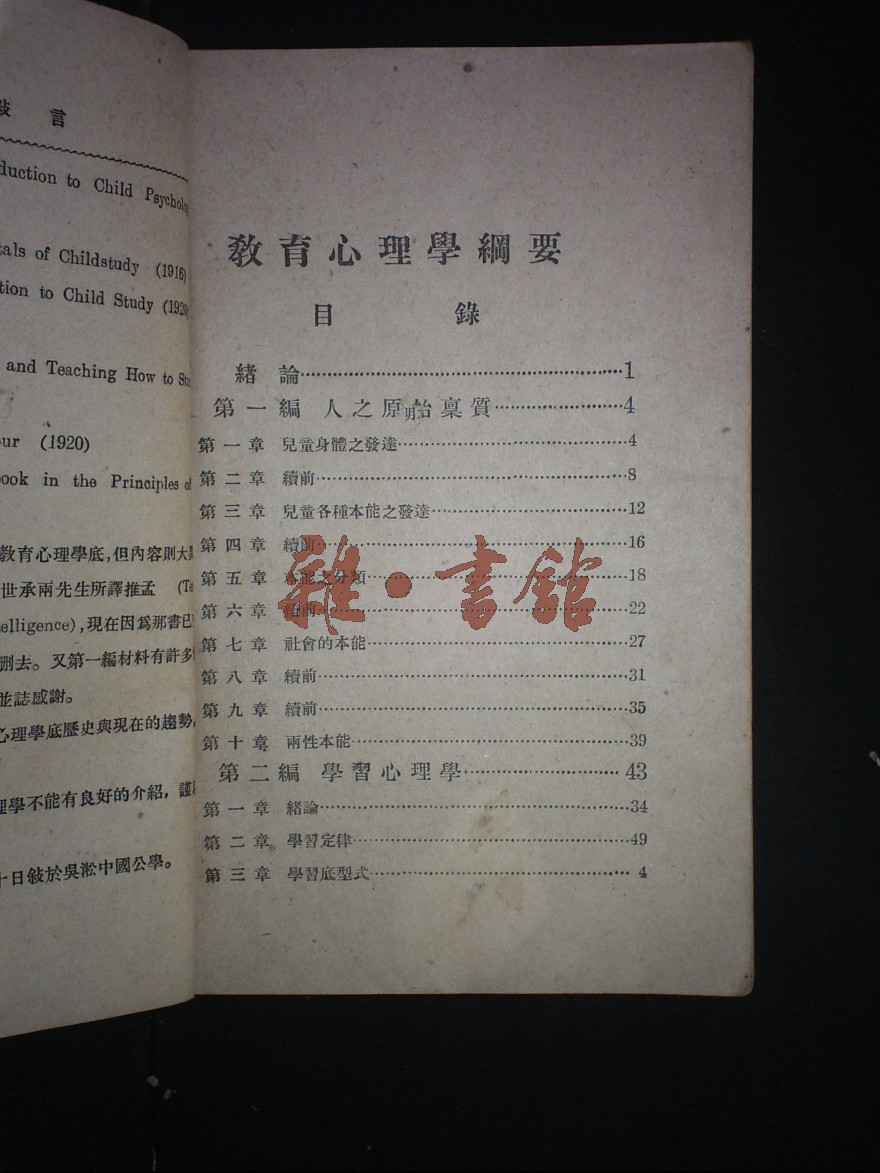 敍言
duction to Child Psycholog
tals of Childstudy (1916)
tion to Child Study (1920
and Teaching How to Stu
our (1920)
book in the Principles of
教育心理學底,但內容則大
世承兩先生所譯推孟 (Te
elligence),現在因爲那書已
删去。又第一編材料有許多
並誌感謝。
心理學底歷史與現在的趨勢,
理學不能有良好的介紹,謹
十日敍於吳淞中國公學。
教育心理學綱要
目錄
緒論……1
第一編 人之原始稟質……4
第一章 兒童身體之發達……4
第二章 續前……8
第三章 兒童各種本能之發達……12
第四章 續前……16
第五章 本能之分類……18
第六章 續前……22
第七章 社會的本能……27
第八章 續前……31
第九章 續前……35
第十章 兩性本能……39
第二編 學習心理學……43
第一章 緒論……34
第二章 學習定律……49
第三章 學習底型式……4
雜·書館